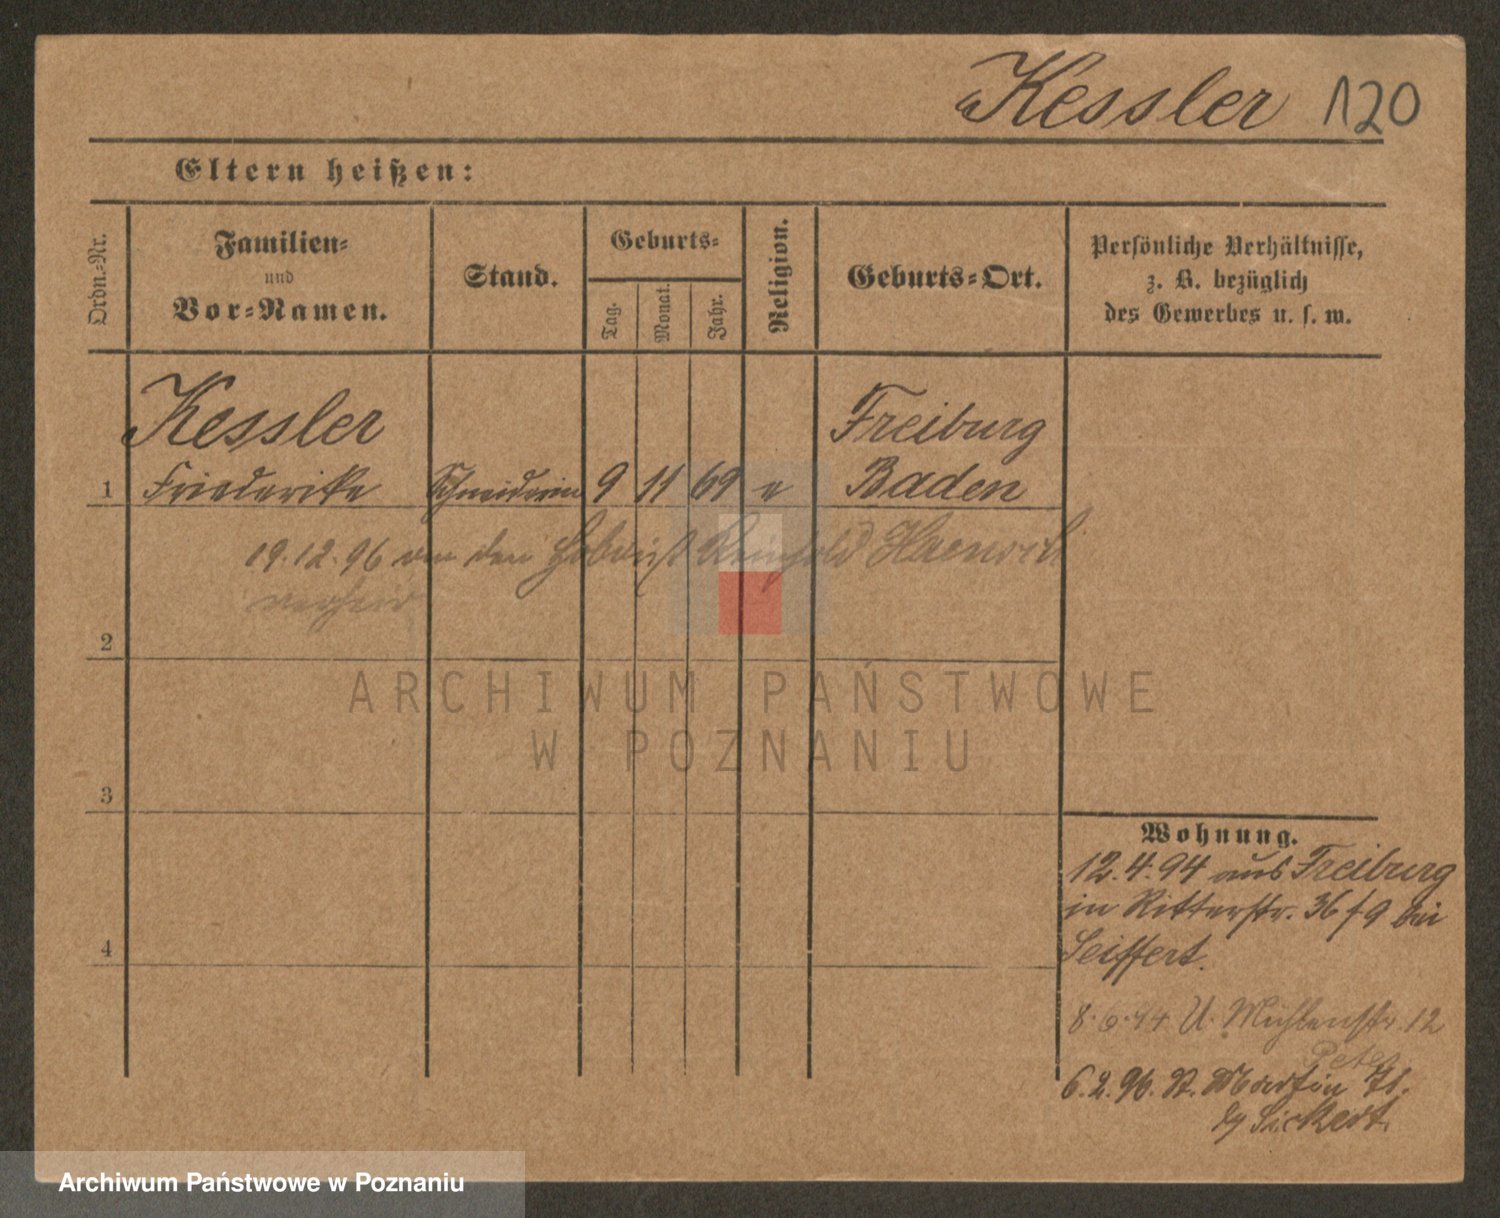 Kessler 120
Eltern heißen:
Ordn.-Nr.
Familien-
und
Vor-Namen.
Stand.
Geburts-
Tag.
Monat.
Jahr.
Religion.
Geburts-Ort.
Persönliche Verhältnisse,
z. B. bezüglich
des Gewerbes u. s. w.
Kessler Freiburg
1 Friederike Schneiderin 9 11 69 e Baden
19.12.96 den Reinhold
2
ARCHIWUM PAŃSTWOWE
W POZNANIU
3
Wohnung.
12.4.94 aus Freiburg
in Ritterstr. 36 f 9 bei
4 Seiffert.
8.6.94 U. Mühlenstr. 12
6.2.96. St. Martin 71.
Sickert.
Archiwum Państwowe w Poznaniu